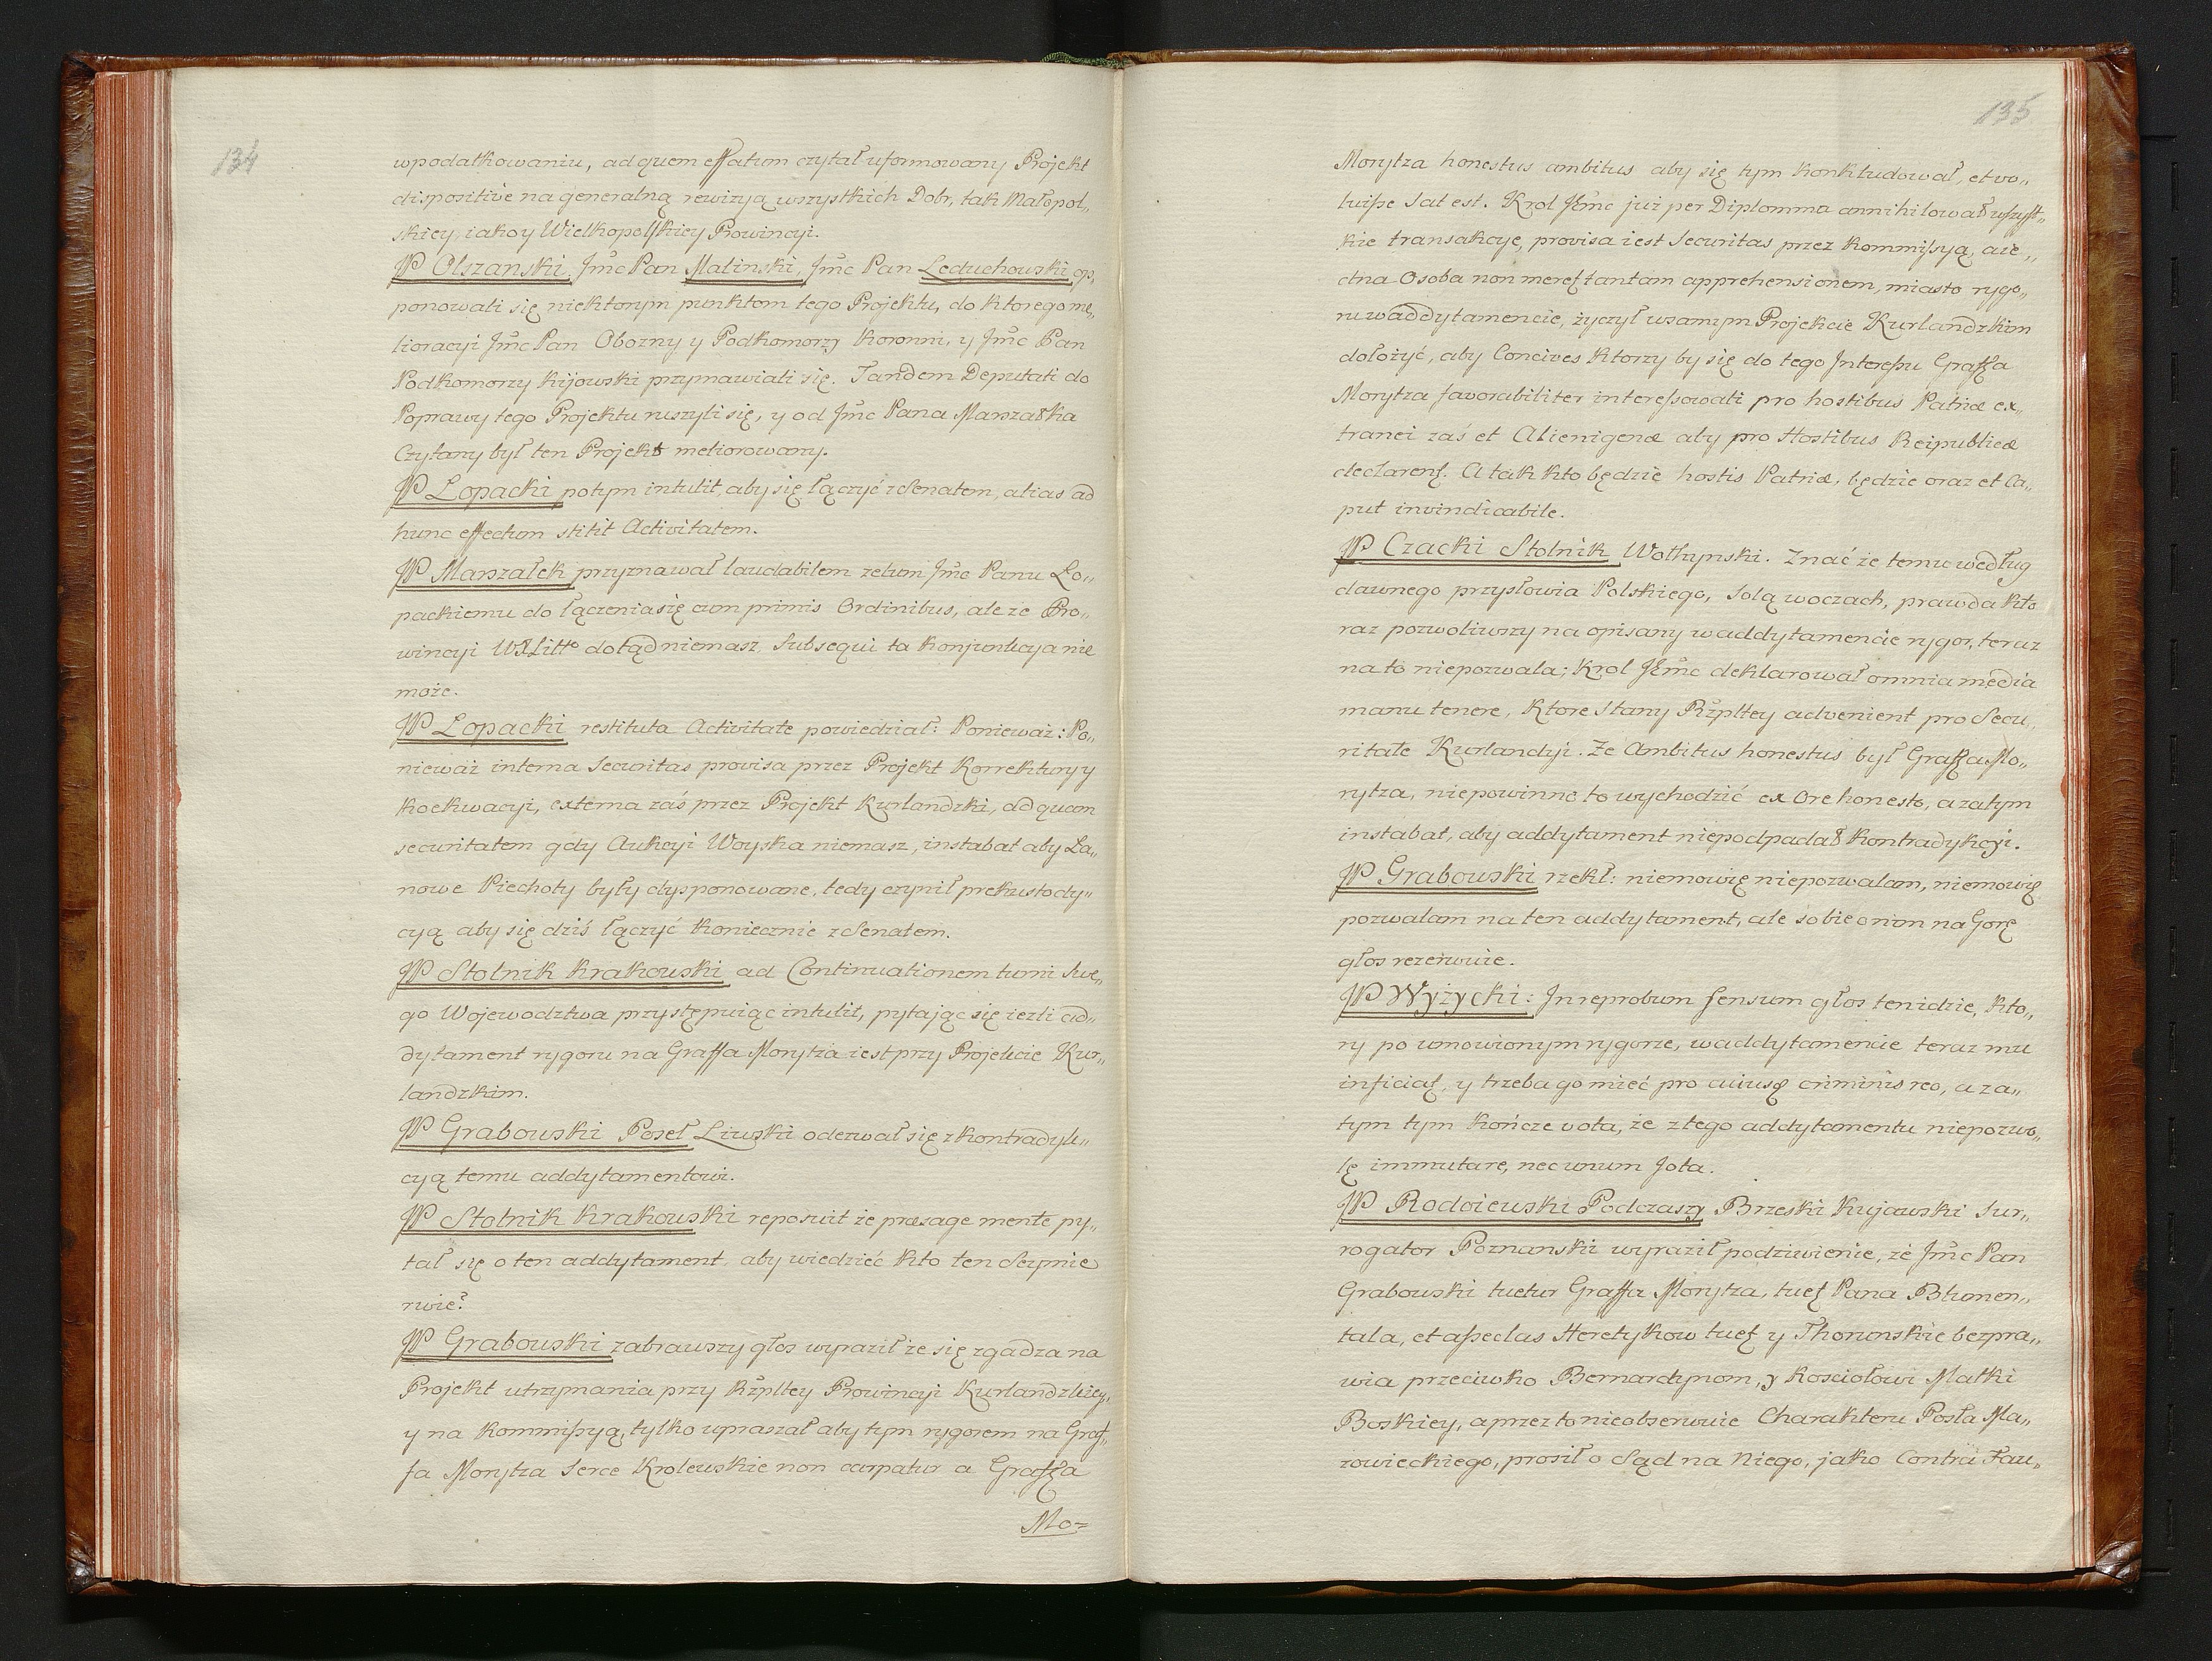 134
wpodatkowaniu, ad quem effatum czytał uformowany Projekt
dispositive na generalną rewizyą wszystkich Dobr, tak Małopol„
skiey, iako y Wielkopolskiey Prowincyi.
JP Olszanski, Jmc Pan Malinski, Jmc Pan Leduchowski op„
ponowali się niektorym punktom tego Projektu, do ktorego me„
lioracyi Jmc Pan Obozny y Podkomorzy Koronni, y Jmc Pan
Podkomorzy Kijowski przymawiali się. Tandem Deputati do
Poprawy tego Projektu ruszyli się, y od Jmc Pana Marszałka
Czytany był ten Projekt meliorowany.
JP Łopacki potym intulit, aby się łączyć z Senatem, alias ad
hunc effectum stitit Activitatem.
JP Marszałek przyznawał laudabilem zelum Jmc Panu Ło„
packiemu do łączenia się cum primis Ordinibus, ale ze Pro„
wincyi WXLitto dotąd niemasz, Subsequi ta Konjunkcya nie
może.
JP Łopacki restituta Activitate powiedział: Ponieważ: Po„
nieważ interna Securitas provisa przez Projekt Korrektury y
Koekwacyi, externa zaś przez Projekt Kurlandzki, ad quam
securitatem gdy Aukcyi Woyska niemasz, instabat aby Ła„
nowe Piechoty były dysponowane, tedy czynił prekustody„
cyą aby się dziś łączyć koniecznie z Senatem.
JP Stolnik Krakowski ad Continuationem turni Swe„
go Wojewodztwa przystępuiąc intulit, pytając się ieżli ad„
dytament rygoru na Graffa Morytza iest przy Projekcie Kur„
landzkim.
JP Grabowski Poseł Liwski odezwał się z kontradyk„
cyą temu addytamentowi.
JP Stolnik Krakowski reposuit że præsage mente py„
tał się o ten addytament, aby wiedzieć kto ten Seymie
rwie?
JP Grabowski zabrawszy głos wyraził że się zgadza na
Projekt utrzymania przy Rzpltey Prowincyi Kurlandzkiey,
y na Kommissyą, tylko upraszał aby tym rygorem na Graf„
fa Morytza Serce Krolewskie non carpatur a Graffa
Mo=
135
Morytza honestus ambitus aby się tym konkludował, et vo„
luisse Sat est. Krol JEmc już per Diplomma annihilował wszyst„
kie transakcye, provisa iest Securitas przez Kommissyą, aie„
dna Osoba non meret tantam apprehensionem, miasto rygo„
ru w addytamencie, życzył w samym Projekcie Kurlandzkim
dołożyć, aby Concives ktorzy by się do tego Interessu Graffa
Morytza favorabiliter interessowali pro hostibus Patriæ ex„
tranei zaś et Alienigenæ aby pro Hostibus Reipublicæ
declarent. A tak kto będzie hostis Patriæ, będzie oraz et Ca„
put invindicabile.
JP Czacki Stolnik Wołhynski. Znać że temu według
dawnego przysłowia Polskiego, Solą w oczach, prawda kto
raz pozwoliwszy na opisany w addytamencie rygor, teraz
na to niepozwala; Krol JEmc deklarował omnia media
manu tenere, ktore Stany Rzpltey advenient pro Secu„
ritate Kurlandyi. Ze Ambitus honestus był Graffa Mo„
rytza, niepowinno to wychodzić ex Ore honesto, a zatym
instabat, aby addytament niepodpadał kontradykcyi.
JP Grabowski rzekł: niemowię niepozwalam, niemowię
pozwalam na ten addytament, ale sobie o nim na Gorę
głos rezerwuie.
JP Wyżycki: In reprobum sensum głos ten idzie, kto„
ry po umowionym rygorze, w addytamencie teraz mu
inficiat, y trzeba go mieć pro cuiusq criminis reo, a za„
tym tym kończe vota, że z tego addytamentu niepozwo„
lę immutare, nec unum Jota.
JP Rodoiewski Podczaszy Brzeski Kujawski Sur„
rogator Poznanski wyraził podziwienie, że Jmc Pan
Grabowski tuetur Graffa Morytza, tuet Pana Blumen„
tala, et asseclas Heretykow tuet y Thorunskie bezpra„
wia przeciwko Bernardynom, y Kosciołowi Matki
Boskiey, a przez to nieobserwuie Charakteru Posła Ma„
zowieckiego, prosił o Sąd na Niego, jako Contra Fau„